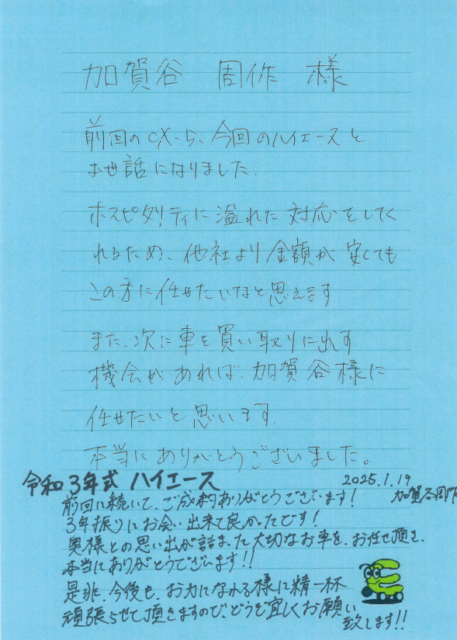 加賀谷 周作 様
前回のCX-5、今回のハイエースと
お世話になりました。
ホスピタリティに溢れた対応をしてく
れるため、他社より金額が安くても
この方に任せたいなと思えます
また、次に車を買い取りに出す
機会があれば、加賀谷様に
任せたいと思います。
本当にありがとうございました。
令和3年式 ハイエース
2025.1.19
加賀谷周作
前回に続いて、ご成約ありがとうございます!
3年振りにお会い出来て良かったです!
奥様との思い出が詰まった大切なお車を、お任せ頂き、
本当にありがとうございます!!
是非、今後も、お力になれる様に精一杯
頑張らせて頂きますので、どうぞ宜しくお願い
致します!!